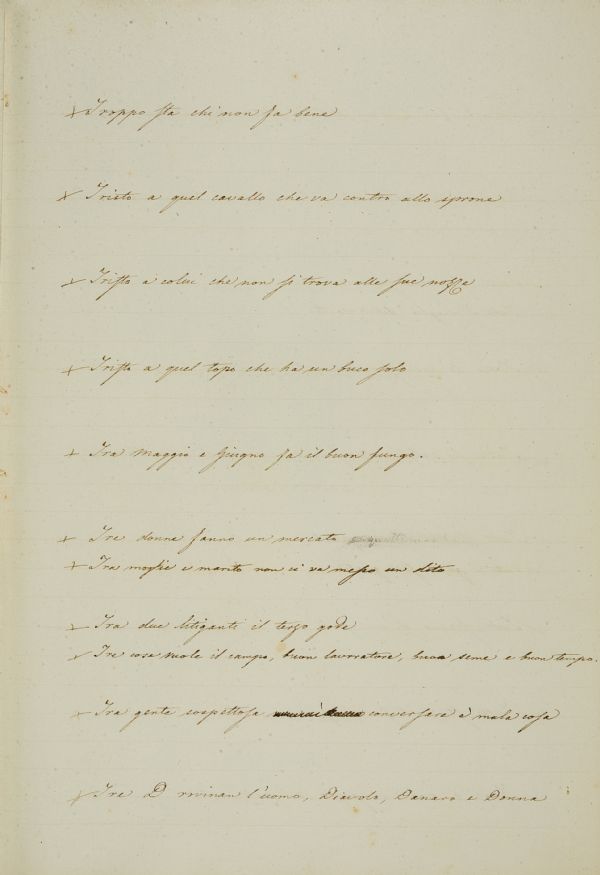 + Troppo sta chi non fa bene
+ Tristo a quel cavallo che va contro allo sprone
+ Tristo a colui che non si trova alle sue nozze
+ Tristo a quel topo che ha un buco solo
+ Tra Maggio e Giugno fa il buon fungo.
+ Tre donne fanno un mercato
+ Tra moglie e marito non ci va messo un dito
+ Tra due litiganti il terzo gode
+ Tre cose vuole il campo, buon lavoratore, buon seme e buon tempo.
+ Tra gente sospettosa conversare è mala cosa
+ Tre D rovinan l'uomo, Diavolo, Danaro e Donna